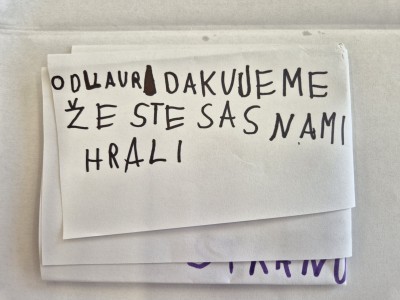 OD LAURI DAKUJEME
ŽE STE SA S NAMI
HRALI